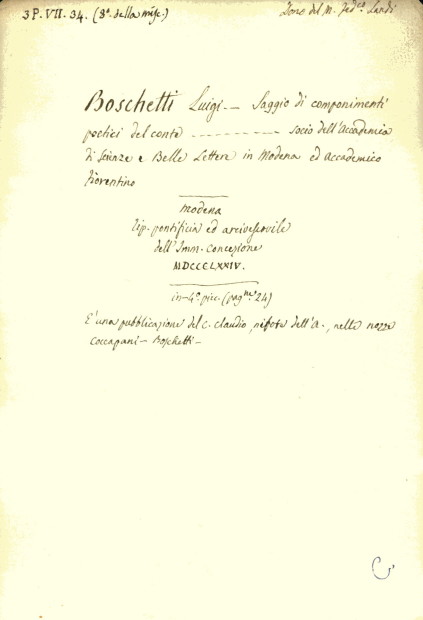 3 P. VII. 34. (8ª. della misc.)
Dono del M. Fed.co Landi
Boschetti Luigi — Saggio di componimenti
poetici del conte - - - - - - - - - socio dell'Accademia
di Scienze e Belle Lettere in Modena ed Accademico
Fiorentino
Modena
Tip. pontificia ed arcivescovile
dell'Imm. Concezione
MDCCCLXXIV.
in-4º. picc. (pag.ne 24)
E' una pubblicazione del C. Claudio, nipote dell'A., nelle nozze
Coccapani — Boschetti —
C